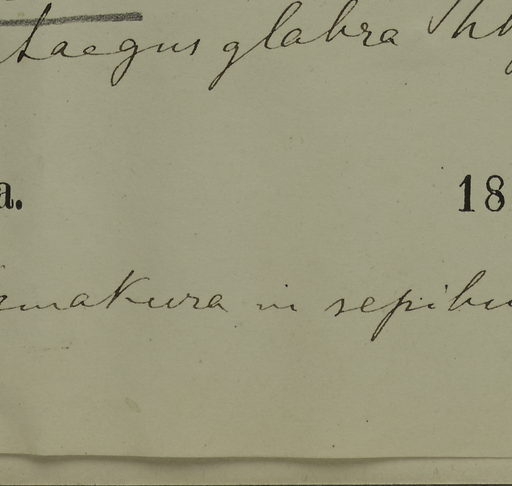 taegus glabra Th
a.
18
makura in sepibu